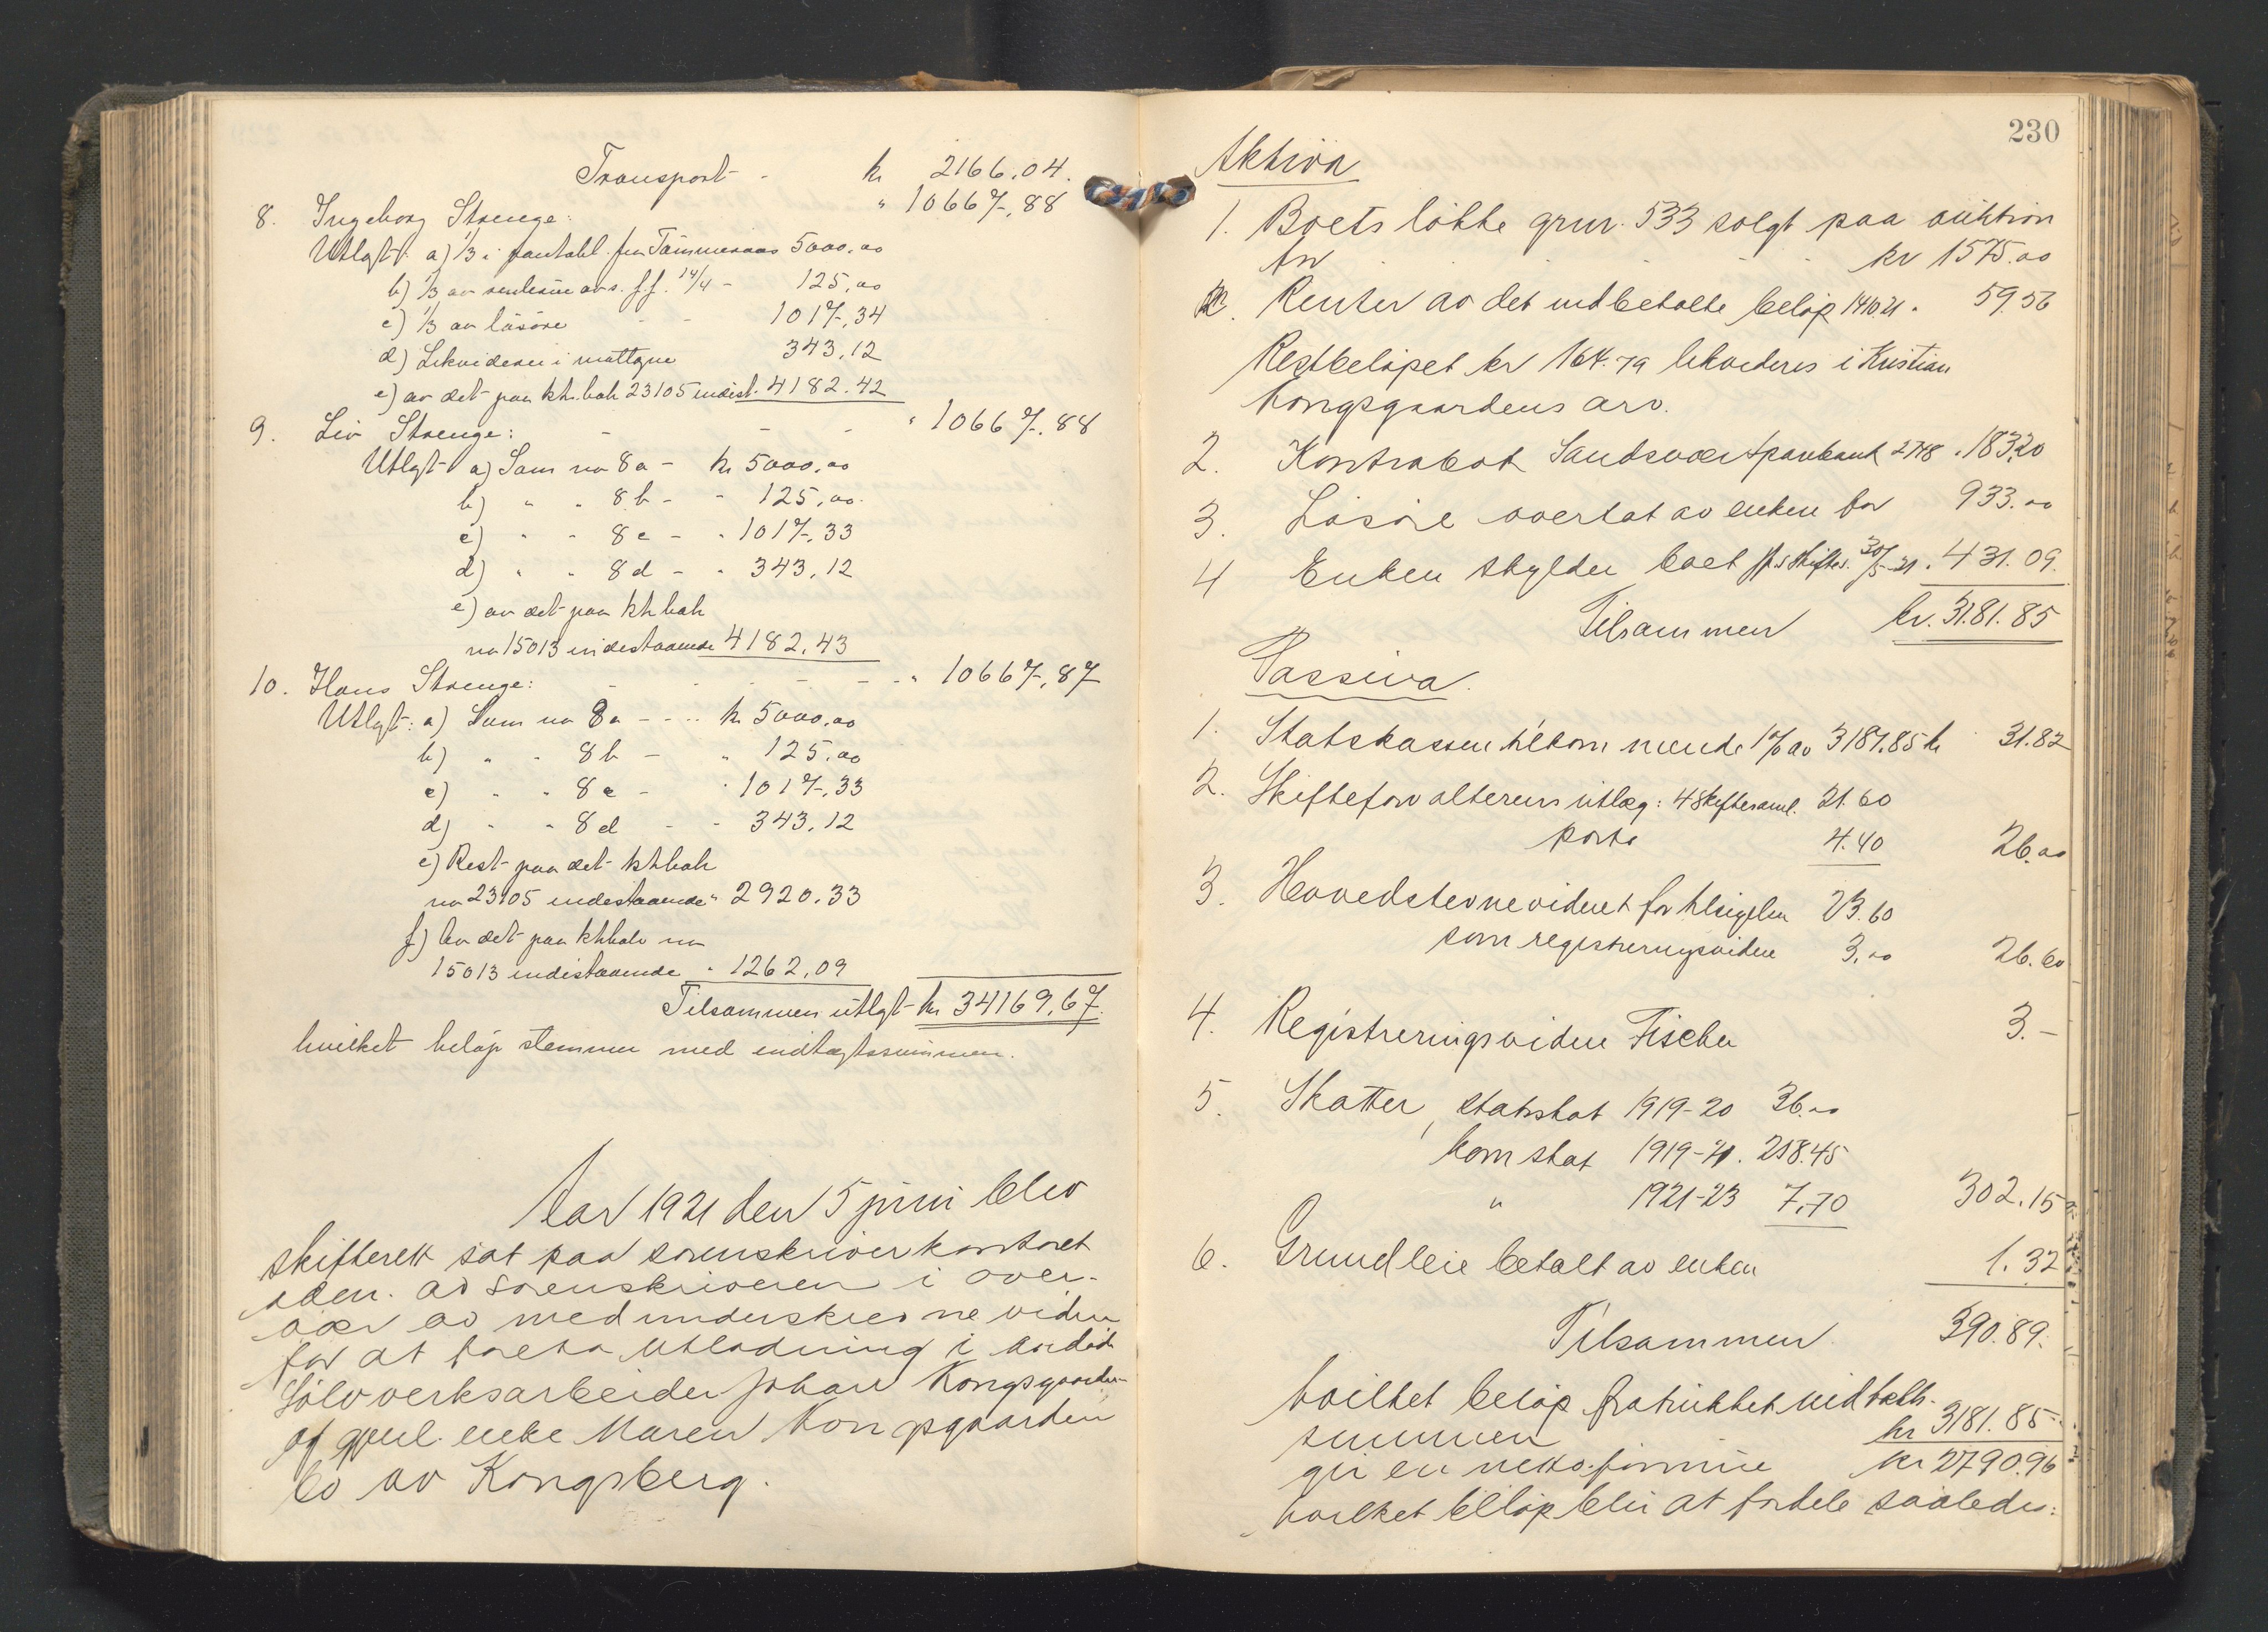 Transport - kr 2166,04.
8. Ingeborg Strenge: " 10667,88
Utlagt: a) 1/3 i pantobl. fra Tømmeraas 5000,00
b) 1/3 av 14/4 - 125,00
c) 1/3 av løsøre - - 1017,34
d) Likvideres i mottagne 343,12
e) av det paa ktr.bok 23105 indest. 4182.42
9. Liv Strenge: - - - " 10667.88
Utlagt a) Som no 8a - kr 5000,00
b) " " 8b - - 125,00.
c) " " 8c - " 1017,33
d) " " 8d - " 343,12
e) av det paa ktrbok
no 15013 indestaaende 4182,43
10. Hans Strenge: - - - - - " 10667,87
Utlagt: a) Som no 8a - - .. kr 5000,00
b) " " 8b - " 125,00
c) " " 8c - " 1017,33
d) " " 8d - - 343,12
e) Rest paa det ktrbok
no 23105 indestaaende " 2920.33
f) Av det paa ktrbok no
15013 indestaaende " 1262,09
Tilsammen utlagt kr 34169,67.
hvilket beløp stemmer med indtægtssummen.
Aar 1921 den 5 juni blev
skifterett sat paa sorenskriverkontoret
adm. av sorenskriveren i over-
vær av medunderskrevne vidner
for at foreta utlodning i avdøde
Sølvverksarbeider Johan Kongsgaarden
og gjenl. enke Maren Kongsgaarden
bo av Kongsberg.
230
Aktiva
1. Boets løkke grnr. 533 solgt paa auktion
for . . . . kr 1575.00
Renter av det indbetalte beløp 14/10.21 . 59.56
Restbeløpet kr 164.79 likvideres i Kristian
Kongsgaardens arv.
2. Kontrabok Sandsvær Sparebank 2748 . 183.20
3. Løsøre overtat av enken for 933.00
4 Enken skylder boet skiftes. 30/5-21 . 431.09.
Tilsammen kr. 3181.85
Passiva.
1. Statskassen tilkommende 1% av 3181.85 kr 31.82
2. Skifteforvalterens utlæg: 4 skiftesaml. 21.60
porto 4.40 26.00
3. Hovedstevnevidnet for 23.60
som registreringsvidne 3.00 26.60
4. Registreringsvidne Fischer 3.-
5. Skatter, statsskat 1919-20 36.00
kom skat 1919-21. 258.45
" 1921-23 7.70 302.15
6. Grundleie betalt av enken 1.32
Tilsammen 390.89.
hvilket beløp fratrukket indtægts-
summen kr 3181.85
gir en netto formue kr 2790.96
hvilket beløp blir at fordele saaledes: